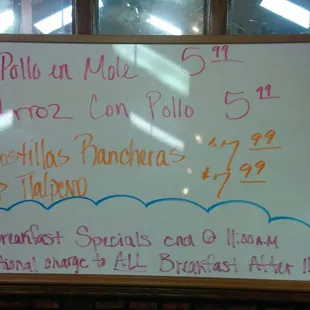 Pollo en Mole 5.99
Arroz Con Pollo 5.99
Costillas Rancheras $7.99
Tlalpeno $7.99
Breakfast Specials end @ 11:00AM
charge to ALL Breakfast After